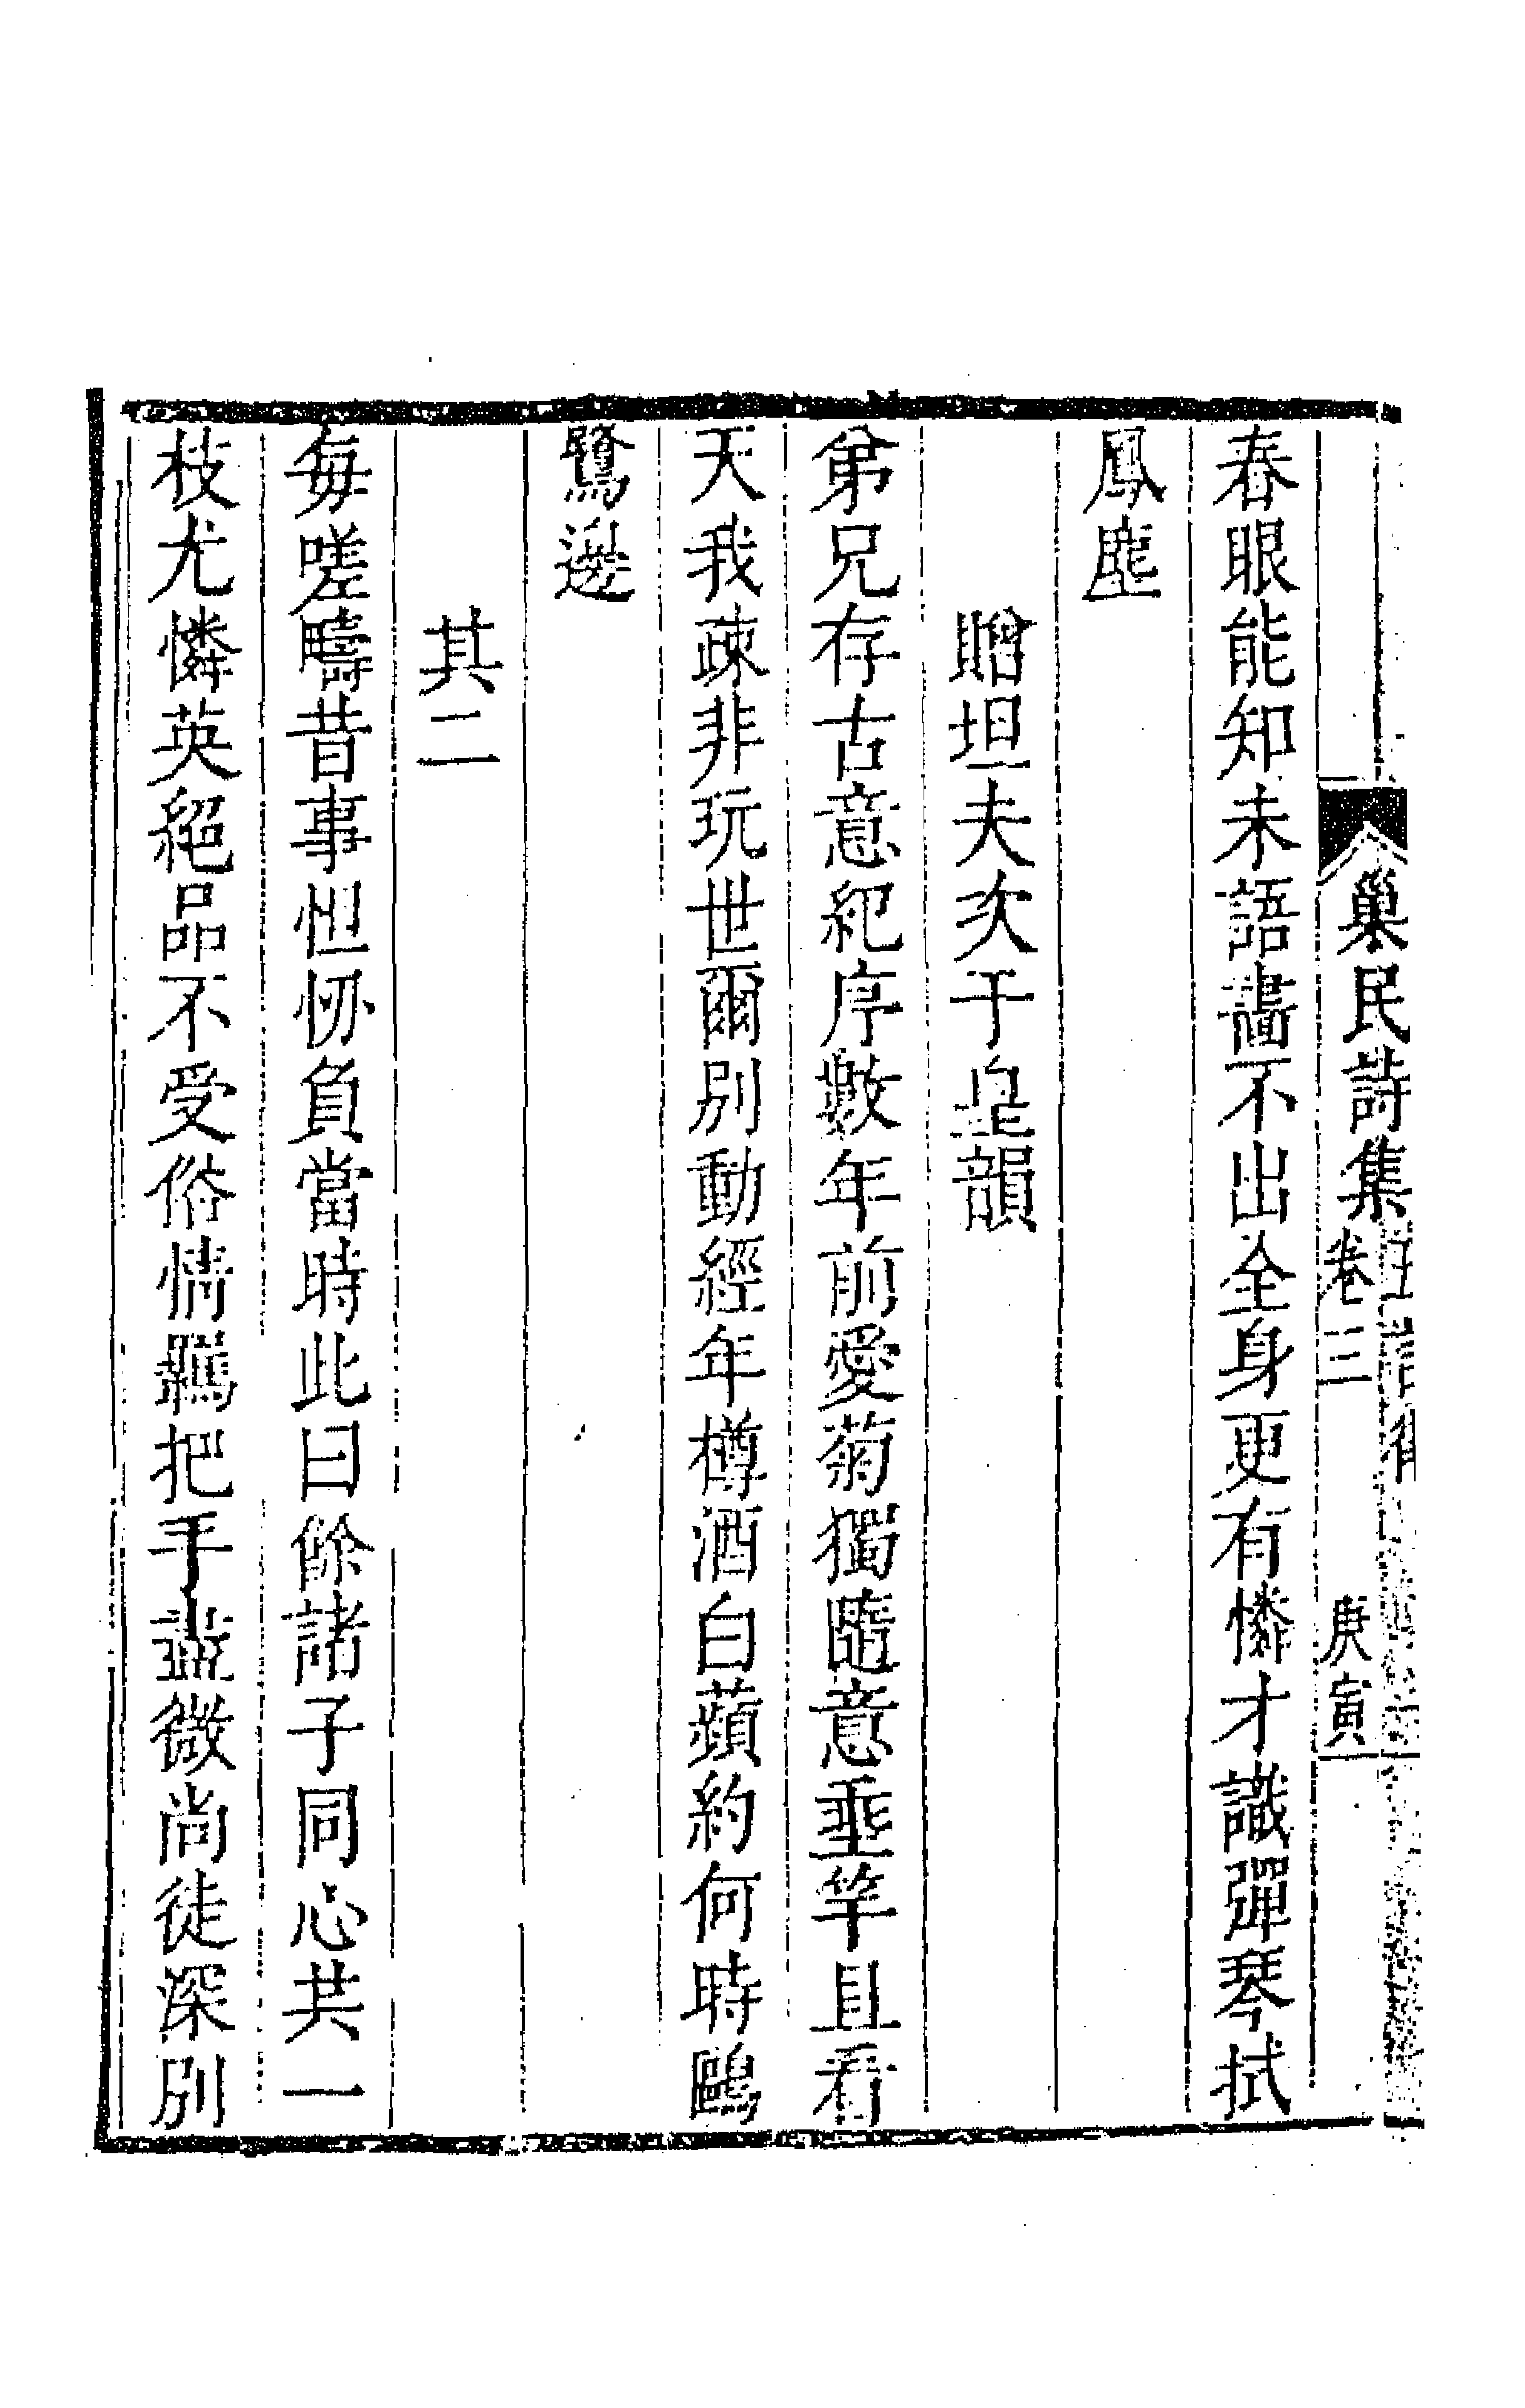 巢民詩集卷三 庚寅
春眼能知未語畵不出全身更有憐才識彈琴拭
鳳塵
贈坦夫次于皇韻
弟兄存古意紀序數年前愛菊獨隨意垂竿且看
天我疎非玩世爾別動經年樽酒白蘋約何時鷗
鷺邊
其二
每嗟疇昔事怛㤼負當時此日餘諸子同心共一
枝尤憐英絕品不受俗情羈把手盡微尚徒深別